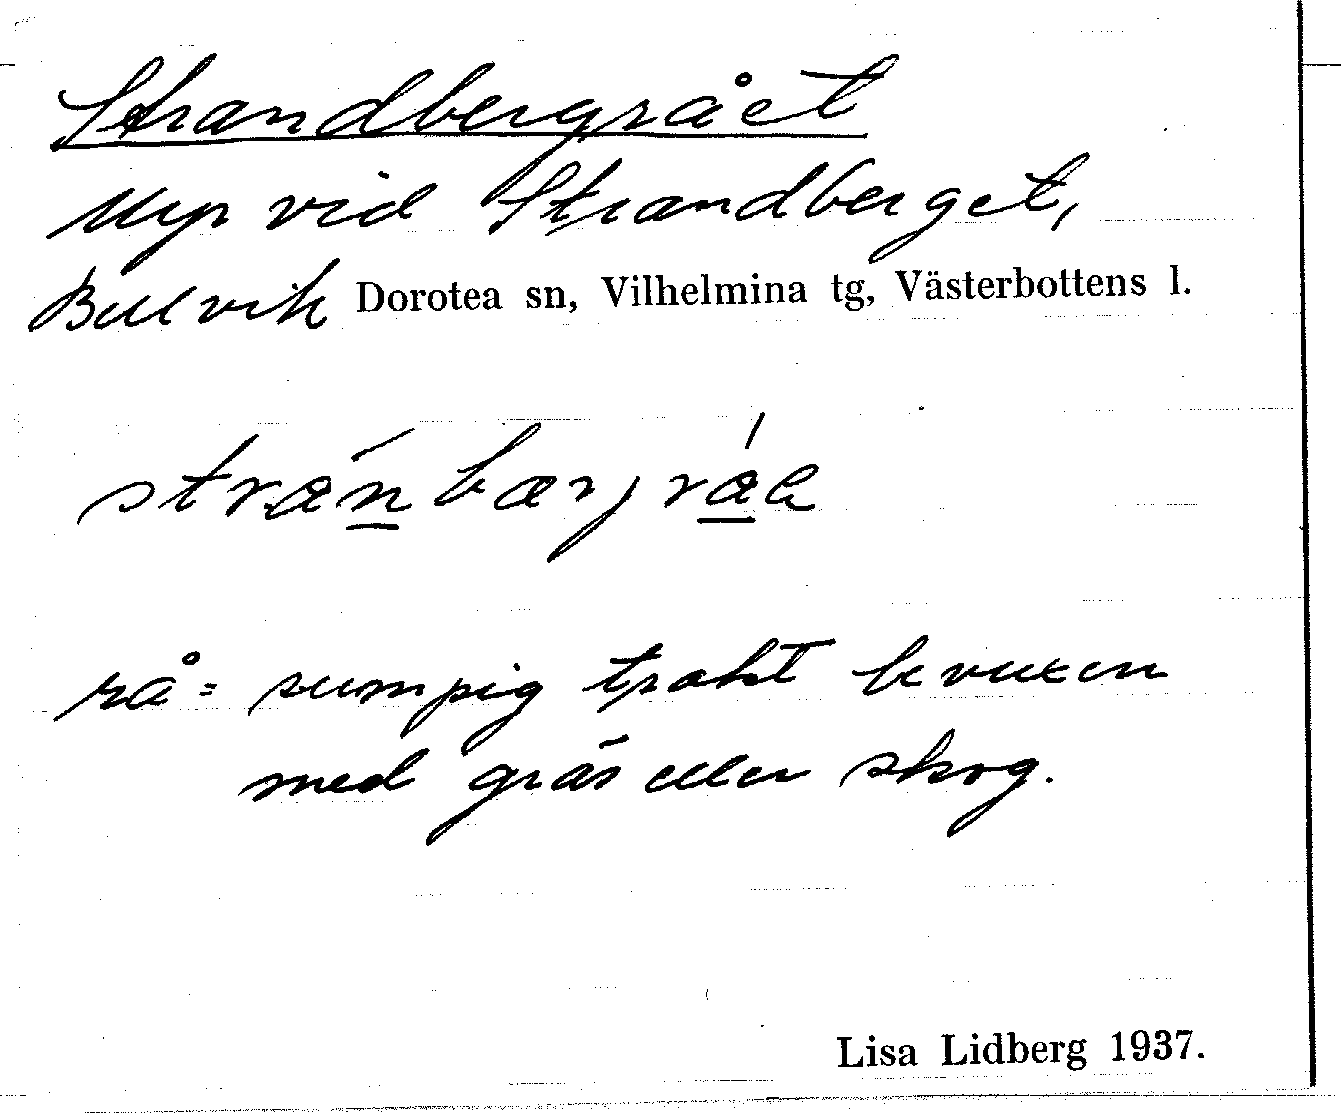 Strandbergrået
Myr vid Strandberget,
Bellvik Dorotea sn, Vilhelmina tg, Västerbottens l.
rå = sumpig trakt bevuxen
med gräs eller skog.
Lisa Lidberg 1937.